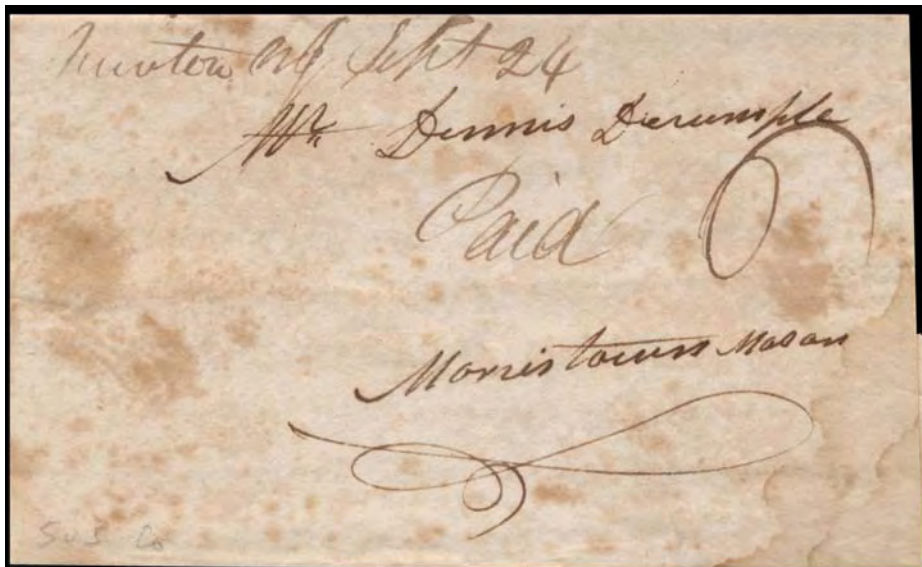 Newton NJ Sept 24
Mr Dennis Derumple
Paid 6
Morristown Mason
Sus Co